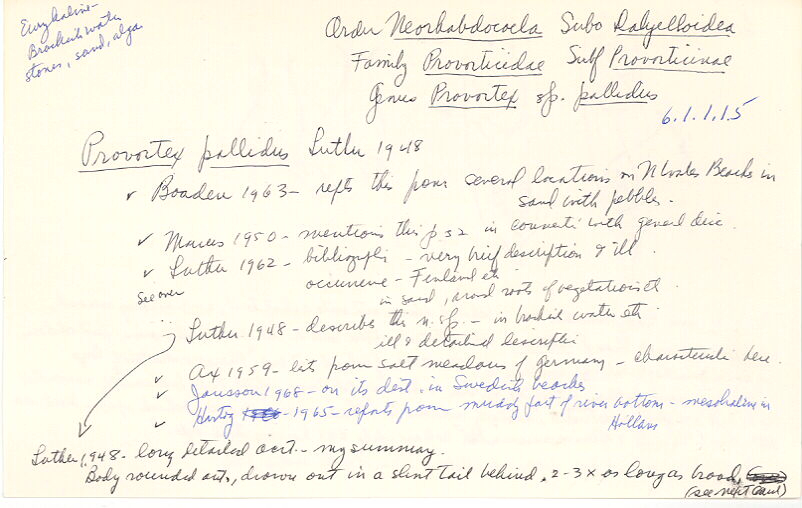 Euryhaline-
Brackish water
stones, sand, alga
Order Neorhabdocoela Subo Dalyelloidea
Family Provorticidae Subf Provorticinae
Genus Provortex sp. pallidus
6.1.1.1.5
Provortex pallidus Luther 1948
✓ Boaden 1963 - repts this from several locations on N Wales Beaches in
sand with pebbles.
✓ Marcus 1950 - mentions this p 32 in connecti with general disc.
✓ Luther 1962 - bibliographi - very brief description & ill.
see over
occurrence - Finland etc
in sand, around roots of vegetation etc.
Luther 1948 - describes this n. sp. - in brackish water etc
ill & detailed descripti
✓ Ax 1959 - lists from salt meadows of Germany - characteristic here.
✓ Jansson 1968 - on its dist. in Swedish beaches
✓ Hartog 1965 - reports from muddy part of river bottom - mesohaline in
Holland
Luther, 1948 - long detailed acct. - my summary.
Body rounded ant., drawn out in a slint tail behind, 2-3 x as long as broad,
(see next card)